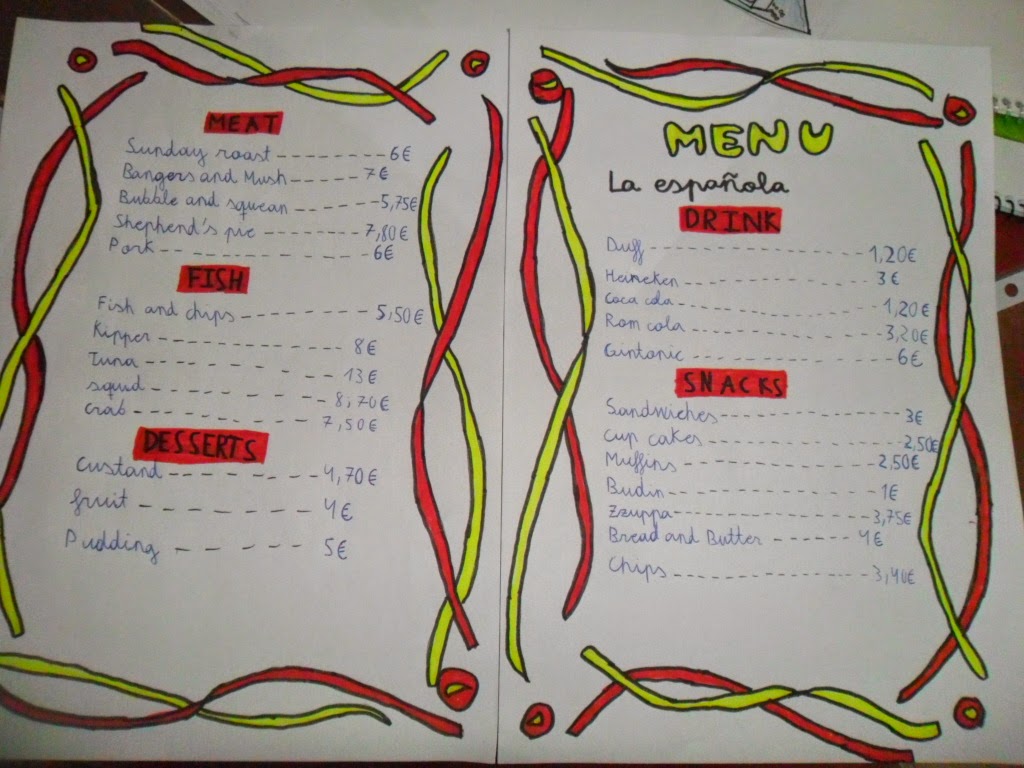 MEAT
Sunday roast --------- 6€
Bangers and Mush ------ 7€
Bubble and squean ------ 5,75€
Shephend's pie ------- 7,80€
Pork ---------- 6€
FISH
Fish and chips --------- 5,50€
Kipper ---------- 8€
Tuna ---------- 13€
squid ---------- 8,70€
crab ---------- 7,50€
DESSERTS
Custand -------- 4,70€
fruit ------- 4€
Pudding ------ 5€
MENU
La española
DRINK
Duff ------------- 1,20€
Heineken ------------ 3€
Coca cola ------------ 1,20€
Rom cola ------------ 3,20€
Gintonic ------------ 6€
SNACKS
Sandwiches ----------- 3€
Cup cakes ------------ 2,50€
Muffins ------------ 2,50€
Budin ------------ 1€
Zzuppa ------------ 3,75€
Bread and Butter ------ 4€
Chips ------------ 3,40€